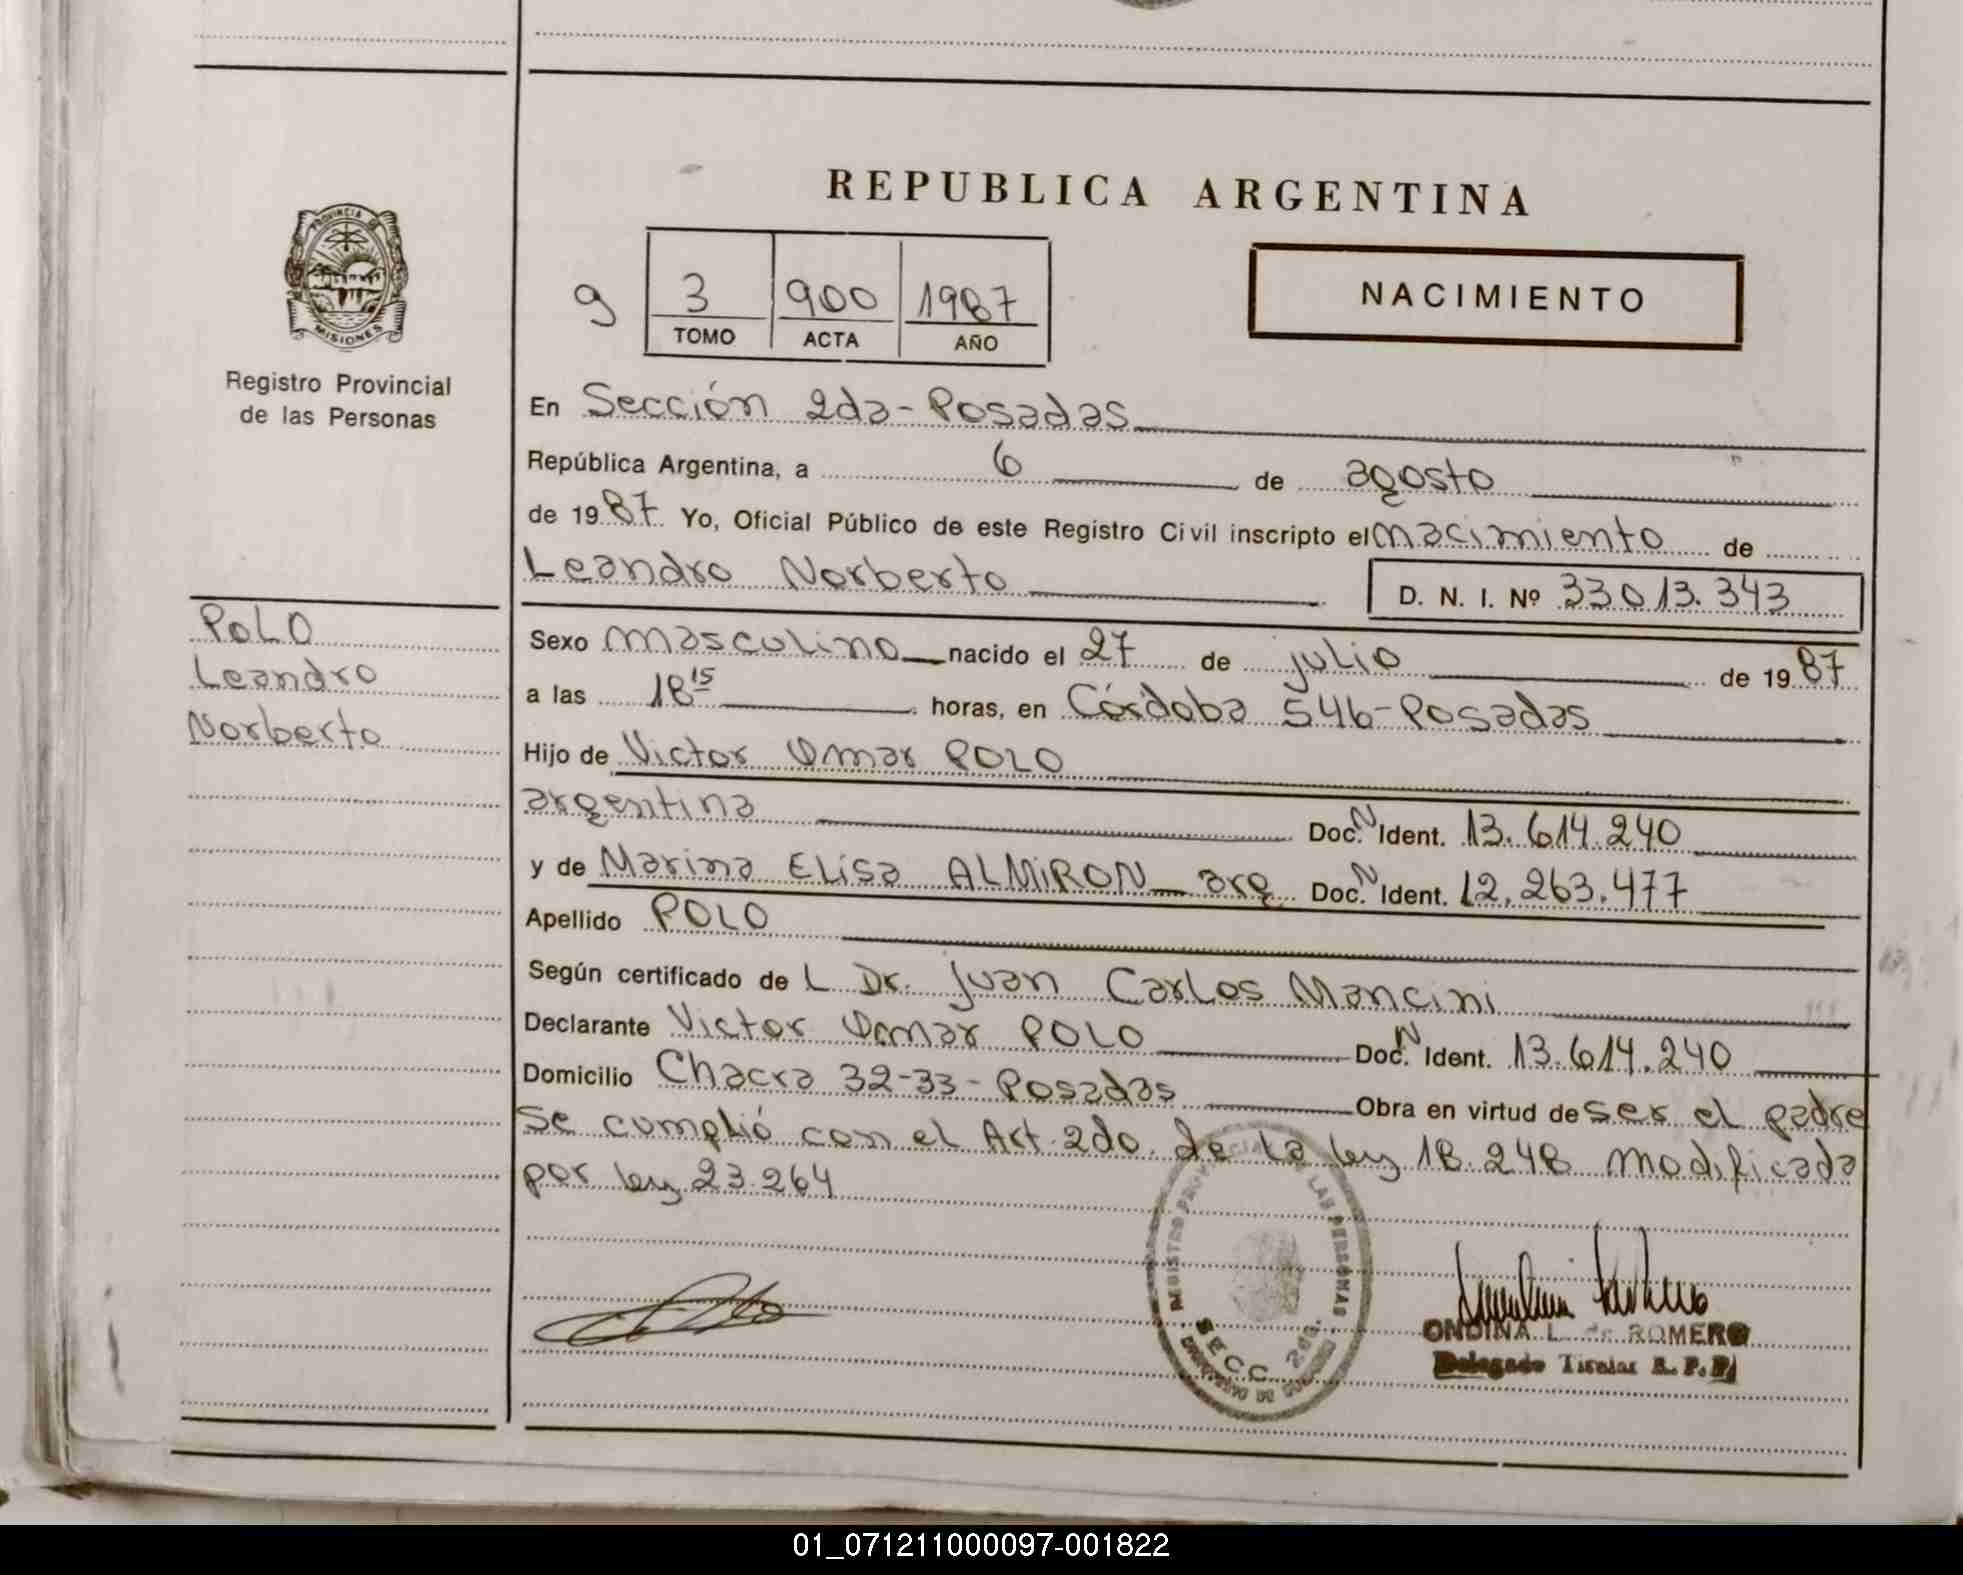 REPUBLICA ARGENTINA
PROVINCIA DE
MISIONES
Registro Provincial
de las Personas
9 3 900 1987
TOMO ACTA AÑO
NACIMIENTO
En Sección 2da-Posadas
República Argentina, a 6 de agosto
de 1987 Yo, Oficial Público de este Registro Civil inscripto el nacimiento de
Leandro Norberto D. N. I. Nº 33013.343
POLO
Leandro
Norberto
Sexo masculino nacido el 27 de julio de 1987
a las 18 15 horas, en Córdoba 546-Posadas
Hijo de Victor Omar POLO
argentina Doc. N Ident. 13.614.240
y de Marina Elisa ALMIRON arg Doc. N Ident. 12.263.477
Apellido POLO
Según certificado de L Dr. Juan Carlos Mancini
Declarante Victor Omar POLO Doc. N Ident. 13.614.240
Domicilio Chacra 32-33-Posadas Obra en virtud de ser el padre
Se cumplió con el Art. 2do. de la ley 18.248 modificada
por ley 23.264
LAS PERSONAS
SECC. 2da.
ONDINA L. de ROMERO
Delegado Titular R. P. P.
01_071211000097-001822